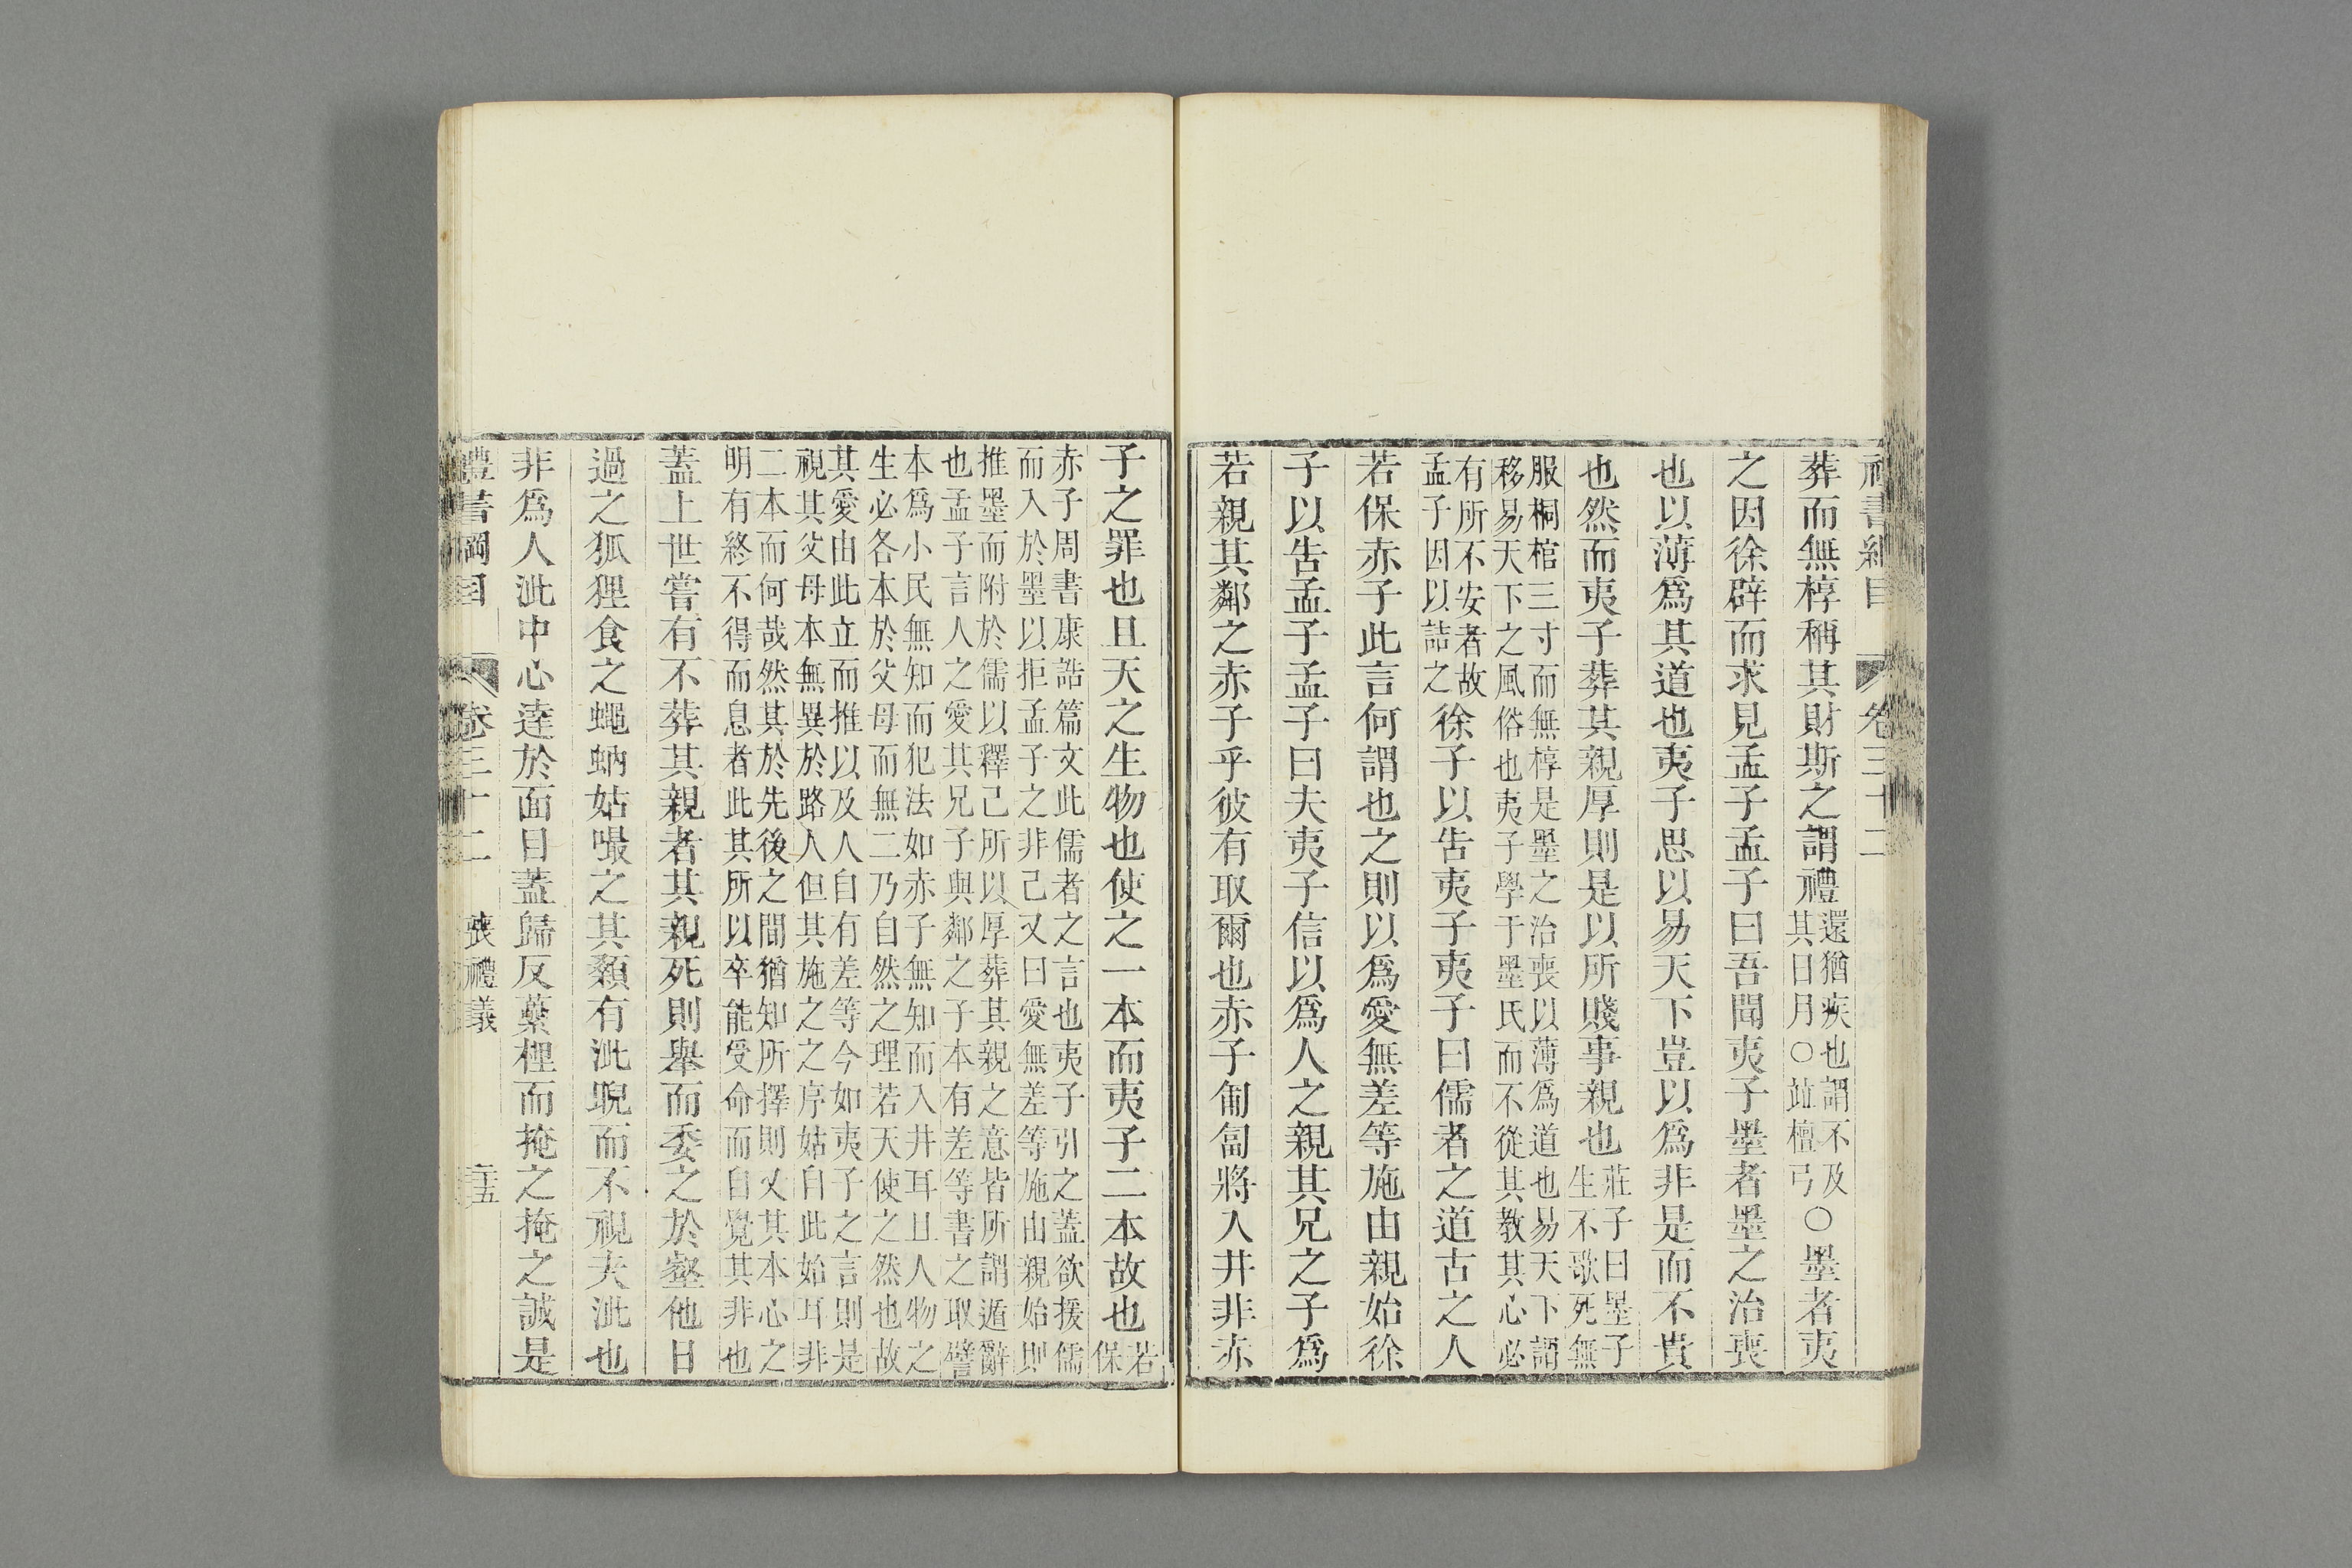 禮書綱目　卷三十二
葬而無椁稱其財斯之謂禮還猶疾也謂不及其日月○並檀弓○墨者夷
之因徐辟而求見孟子孟子曰吾聞夷子墨者墨之治喪
也以薄爲其道也夷子思以易天下豈以爲非是而不貴
也然而夷子葬其親厚則是以所賤事親也莊子曰墨子生不歌死無
服桐棺三寸而無椁是墨之治喪以薄爲道也易天下謂
移易天下之風俗也夷子學于墨氏而不從其教其心必
有所不安者故孟子因以詰之徐子以告夷子夷子曰儒者之道古之人
若保赤子此言何謂也之則以爲愛無差等施由親始徐
子以告孟子孟子曰夫夷子信以爲人之親其兄之子爲
若親其鄰之赤子乎彼有取爾也赤子匍匐將入井非赤
子之罪也且天之生物也使之一本而夷子二本故也若保
赤子周書康誥篇文此儒者之言也夷子引之蓋欲援儒
而入於墨以拒孟子之非己又曰愛無差等施由親始則
推墨而附於儒以釋己所以厚葬其親之意皆所謂遁辭
也孟子言人之愛其兄子與鄰之子本有差等書之取譬
本爲小民無知而犯法如赤子無知而入井耳且人物之
生必各本於父母而無二乃自然之理若天使之然也故
其愛由此立而推以及人自有差等今如夷子之言則是
視其父母本無異於路人但其施之之序姑自此始耳非
二本而何哉然其於先後之間猶知所擇則又其本心之
明有終不得而息者此其所以卒能受命而自覺其非也
蓋上世嘗有不葬其親者其親死則舉而委之於壑他日
過之狐狸食之蠅蚋姑嘬之其顙有泚睨而不視夫泚也
非爲人泚中心達於面目蓋歸反虆梩而掩之掩之誠是
禮書綱目　卷三十二　喪禮義　三十五